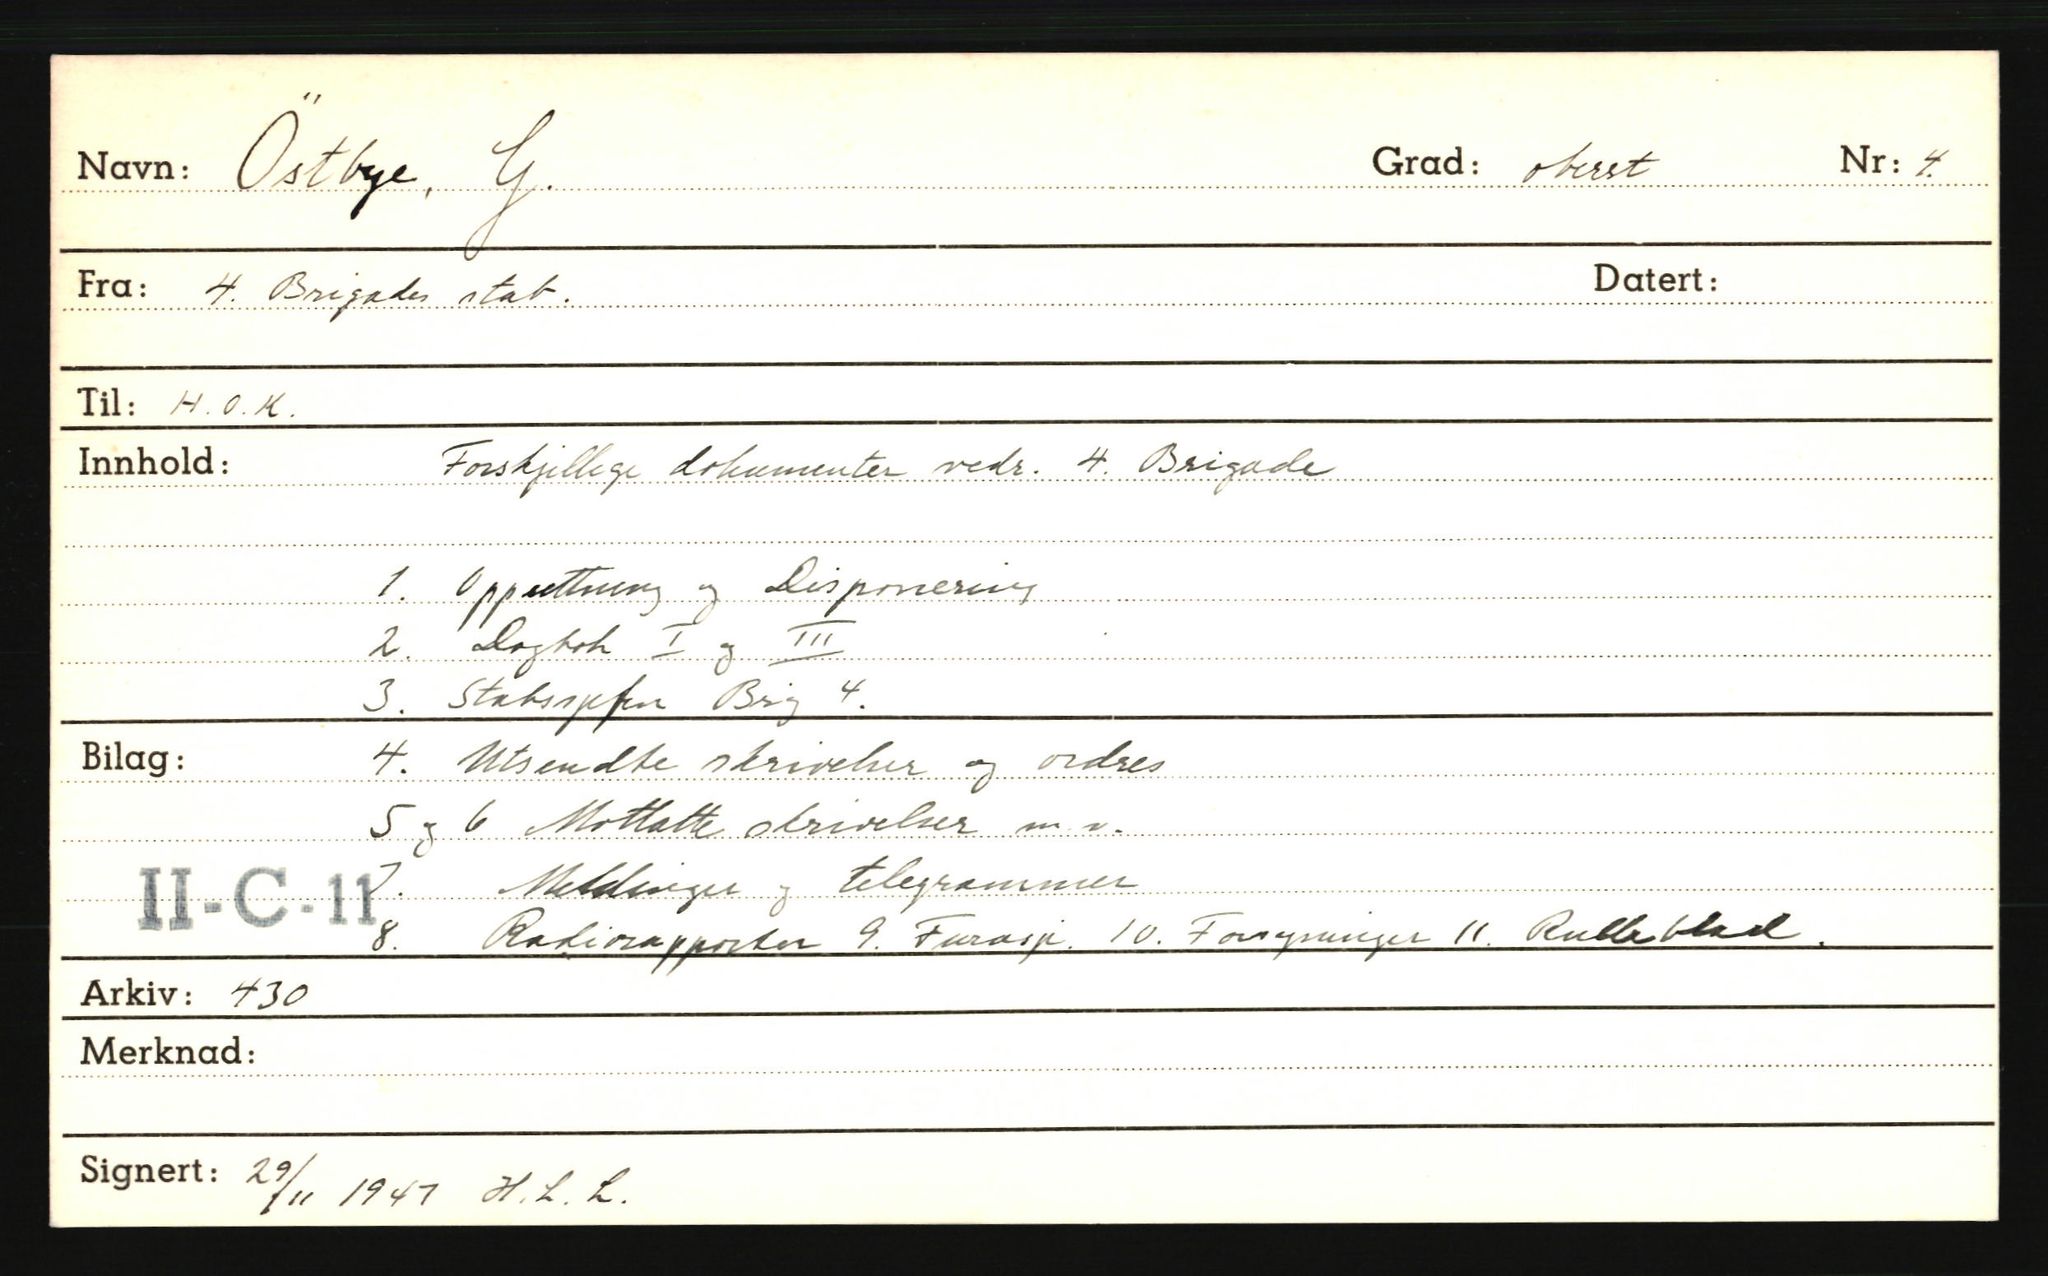 Navn: Östbye, G. Grad: oberst Nr: 4.
Fra: 4. Brigades stab. Datert:
Til: H.O.K.
Innhold: Forskjellige dokumenter vedr. 4. Brigade
1. Oppsetning og Disponering
2. Dagbok I og III
3. Stabssjefen Brig 4.
Bilag: 4. Utsendte skrivelser og ordres
5 og 6 Mottatte skrivelser m.v.
II-C-11 7. Meldinger og telegrammer
8. Radiorapporter 9. Furasje. 10. Forsyninger 11. Rulleblad.
Arkiv: 430
Merknad:
Signert: 29/11 1947 H.L.L.